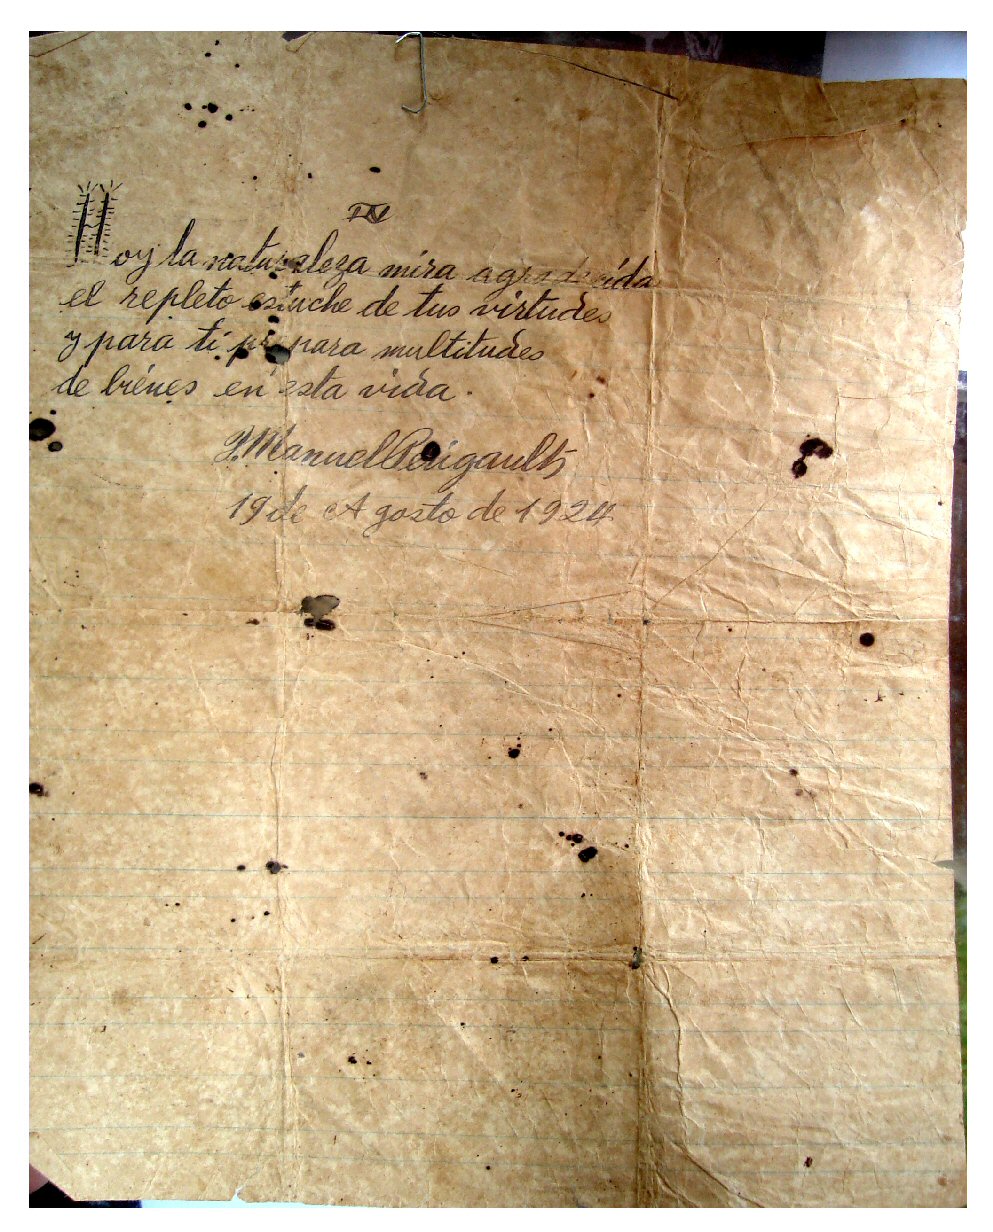 IV
Hoy la naturaleza mira agradecida
el repleto estuche de tus virtudes
y para ti prepara multitudes
de biénes en esta vida.
J. Manuel Perigault
19 de Agosto de 1924